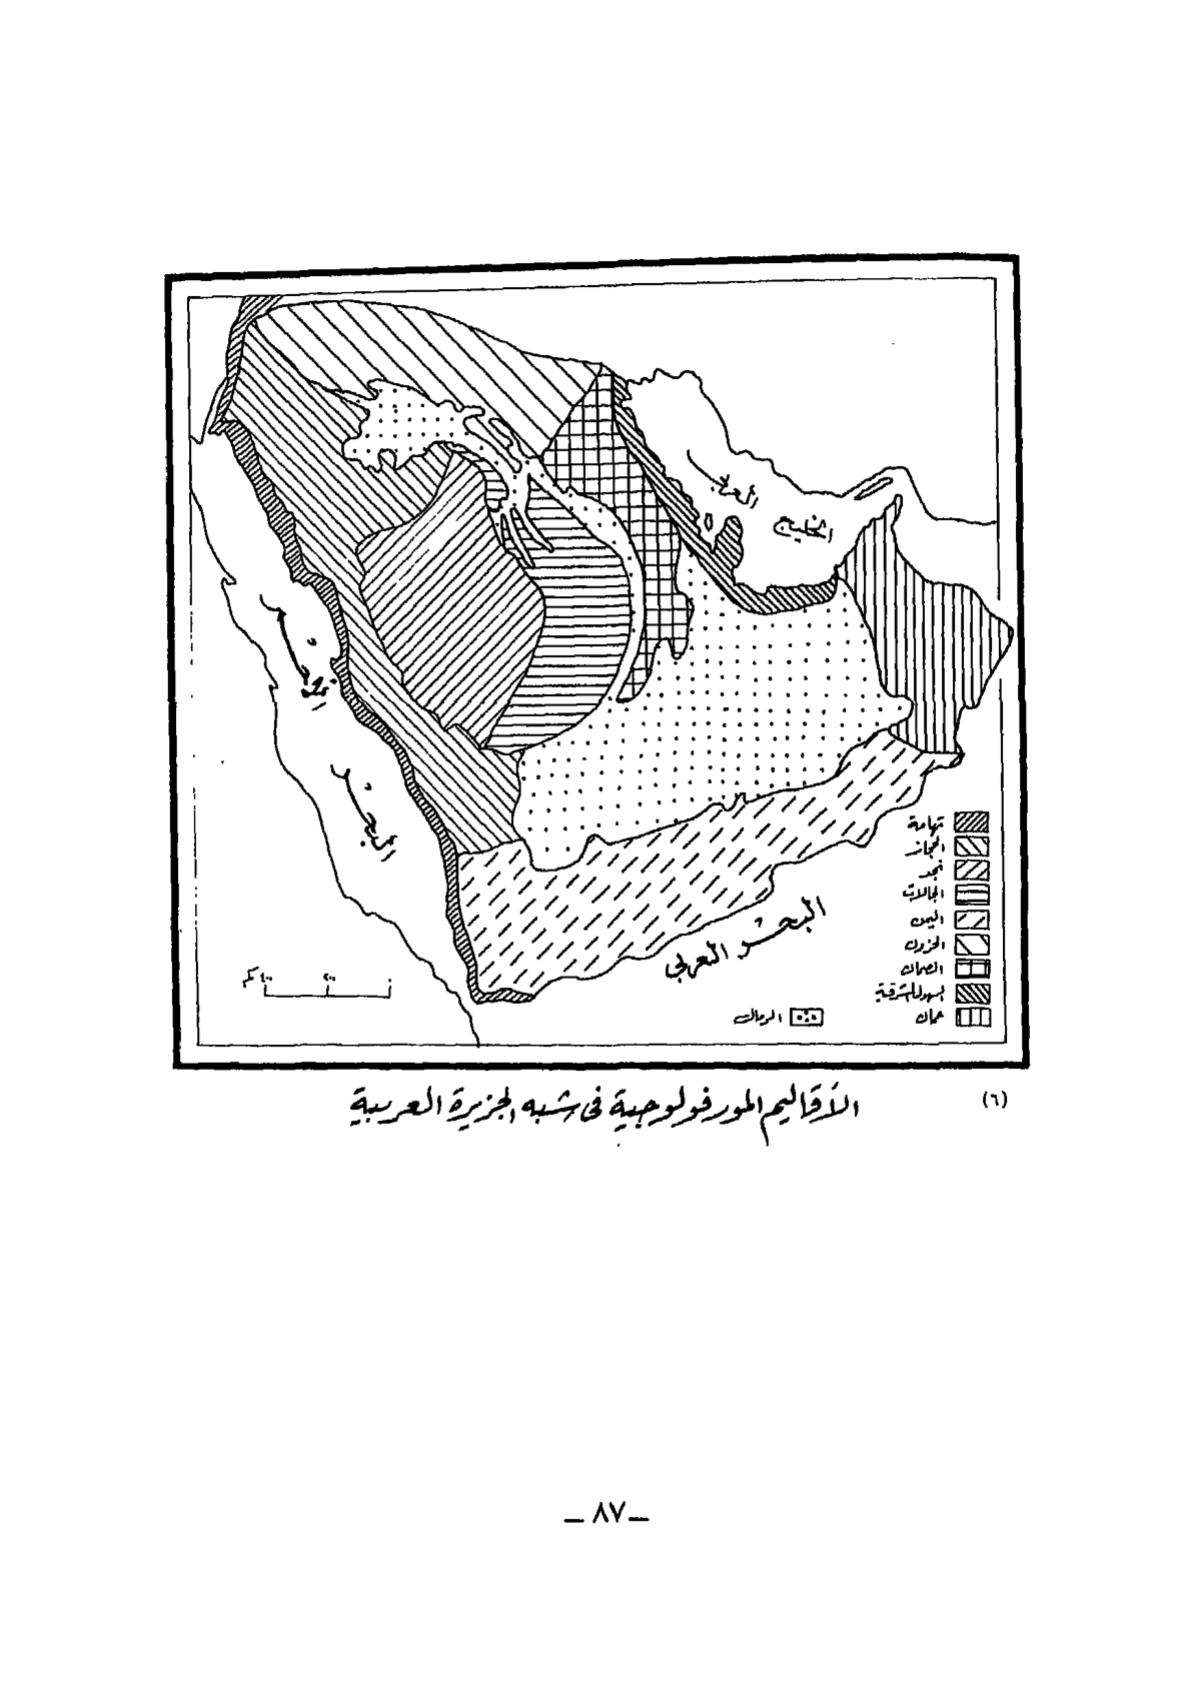 الخليج العربي
البحر الأحمر
البحر العربي
تهامة
الحجاز
نجد
الجالات
اليمن
الحزون
الصمان
السهول الشرقية
عمان
الرمال
٠ ٢٠٠ ٤٠٠ كم
(٦) الأقاليم المورفولوجية فى شبه الجزيرة العربية
ـ ٨٧ ـ